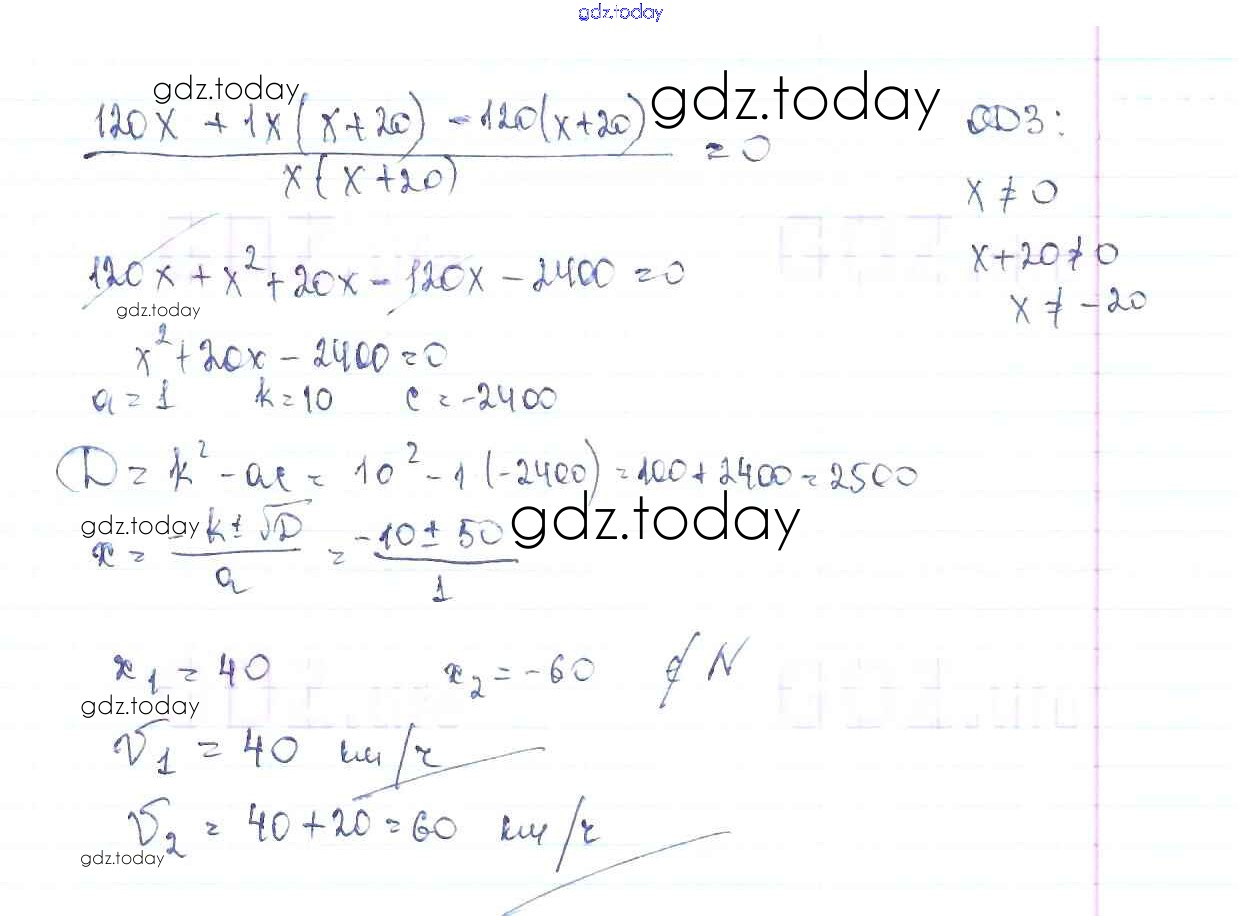 gdz.today
gdz.today gdz.today
120x + 1x(x+20) - 120(x+20) / x(x+20) = 0
ОДЗ:
x ≠ 0
x+20 ≠ 0
x ≠ -20
120x + x² + 20x - 120x - 2400 = 0
gdz.today
x² + 20x - 2400 = 0
a = 1 k = 10 c = -2400
D = k² - ac = 10² - 1(-2400) = 100 + 2400 = 2500
gdz.today gdz.today
x = -k ± √D / a = -10 ± 50 / 1
x₁ = 40 x₂ = -60 ∉ N
gdz.today
V₁ = 40 км/ч
V₂ = 40 + 20 = 60 км/ч
gdz.today